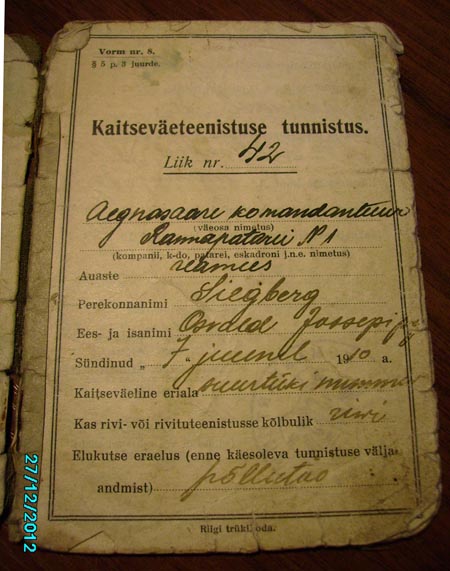 Vorm nr. 8.
§ 5 p. 3 juurde.
Kaitseväeteenistuse tunnistus.
Liik nr. 42
Aegnasaare komandantuur
(väeosa nimetus)
Rannapatarei N1
(kompanii, k-do, patarei, eskadroni j.n.e. nimetus)
Auaste reamees
Perekonnanimi Siegberg
Ees- ja isanimi Josepi pg
Sündinud „ 7 “ juunil 1910 a.
Kaitseväeline eriala suurtüki nummer
Kas rivi- või rivituteenistusse kõlbulik rivi
Elukutse eraelus (enne käesoleva tunnistuse välja-
andmist) põllutöö
Riigi trüki. oda.
27/12/2012